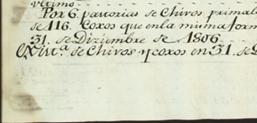 ultimo
Por 6 partorias de Chivos primal
de 116. Coxos que enla misma form
31. de Diziembre de 1806
Exist.ᵃ de Chivos y coxos en 31. de D